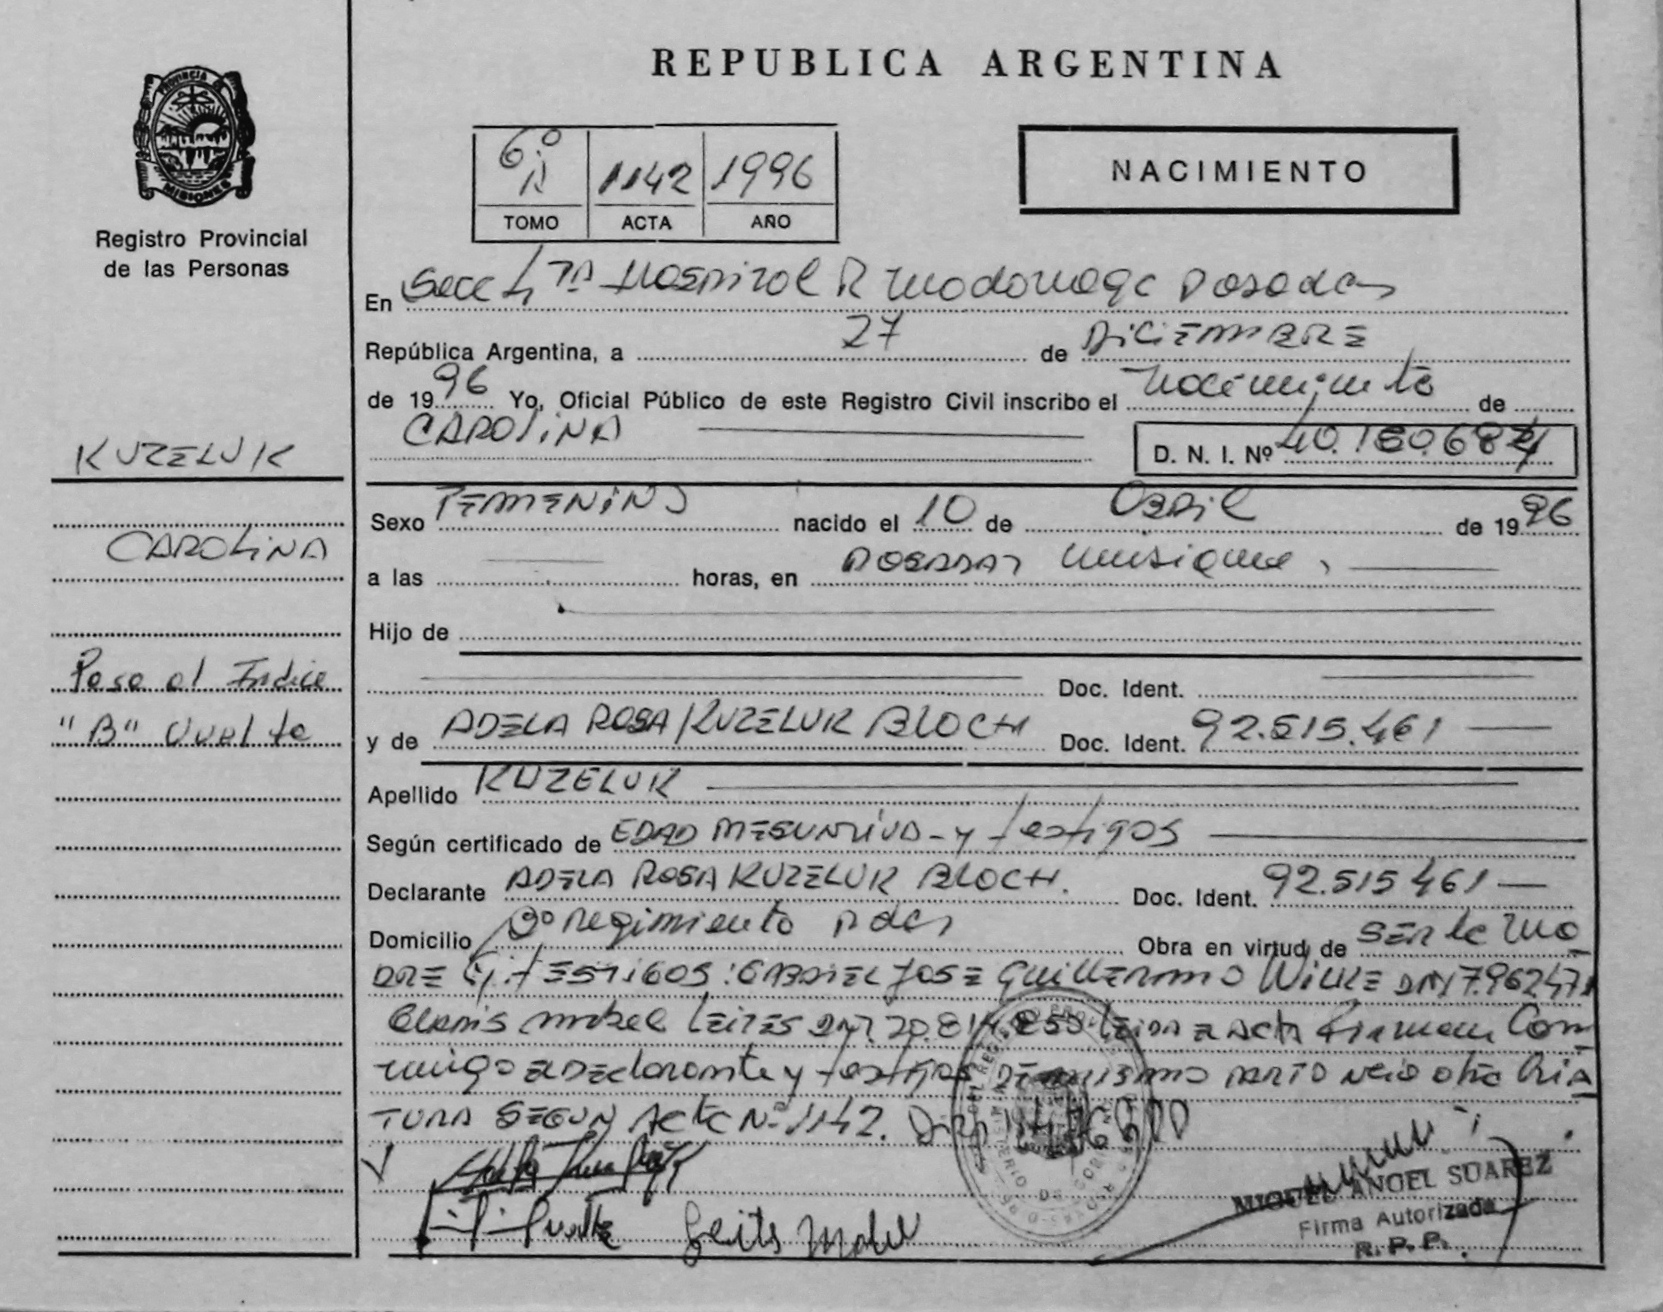 PROVINCIA DE
MISIONES
Registro Provincial
de las Personas
REPUBLICA ARGENTINA
6º A 1142 1996
TOMO ACTA AÑO
NACIMIENTO
En Secc 4 TA Hospital R Madariaga Posadas
República Argentina, a 27 de DICIEMBRE
de 1996 Yo, Oficial Público de este Registro Civil inscribo el nacimiento de
CAROLINA D. N. I. Nº
KUZELUK
Sexo FEMENINO nacido el 10 de Abril de 1996
CAROLINA
a las horas, en POSADAS Misiones
Hijo de
Pase al Indice
Doc. Ident.
"B" Vuelta
y de ADELA ROSA KUZELUK BLOCH Doc. Ident. 92.515.461
Apellido KUZELUK
Según certificado de EDAD PRESUNTIVA - y testigos
Declarante ADELA ROSA KUZELUK BLOCH. Doc. Ident. 92.515 461
Domicilio Regimiento Pdas Obra en virtud de SER la MA
DRE y TESTIGOS: GABRIEL JOSE GUILLERMO WILKE DNI 7.962471
Gladis Mabel LEITES DNI 20.814.855 LEIDA EL Acta Firman Con
migo el DEclarante y testigos DEL MISMO PARTO Nacio otra CriA
TURA SEGUN Acta Nº 1142.
Leites Mabel
MIGUEL ANGEL SUAREZ
Firma Autorizada
R. P. P.